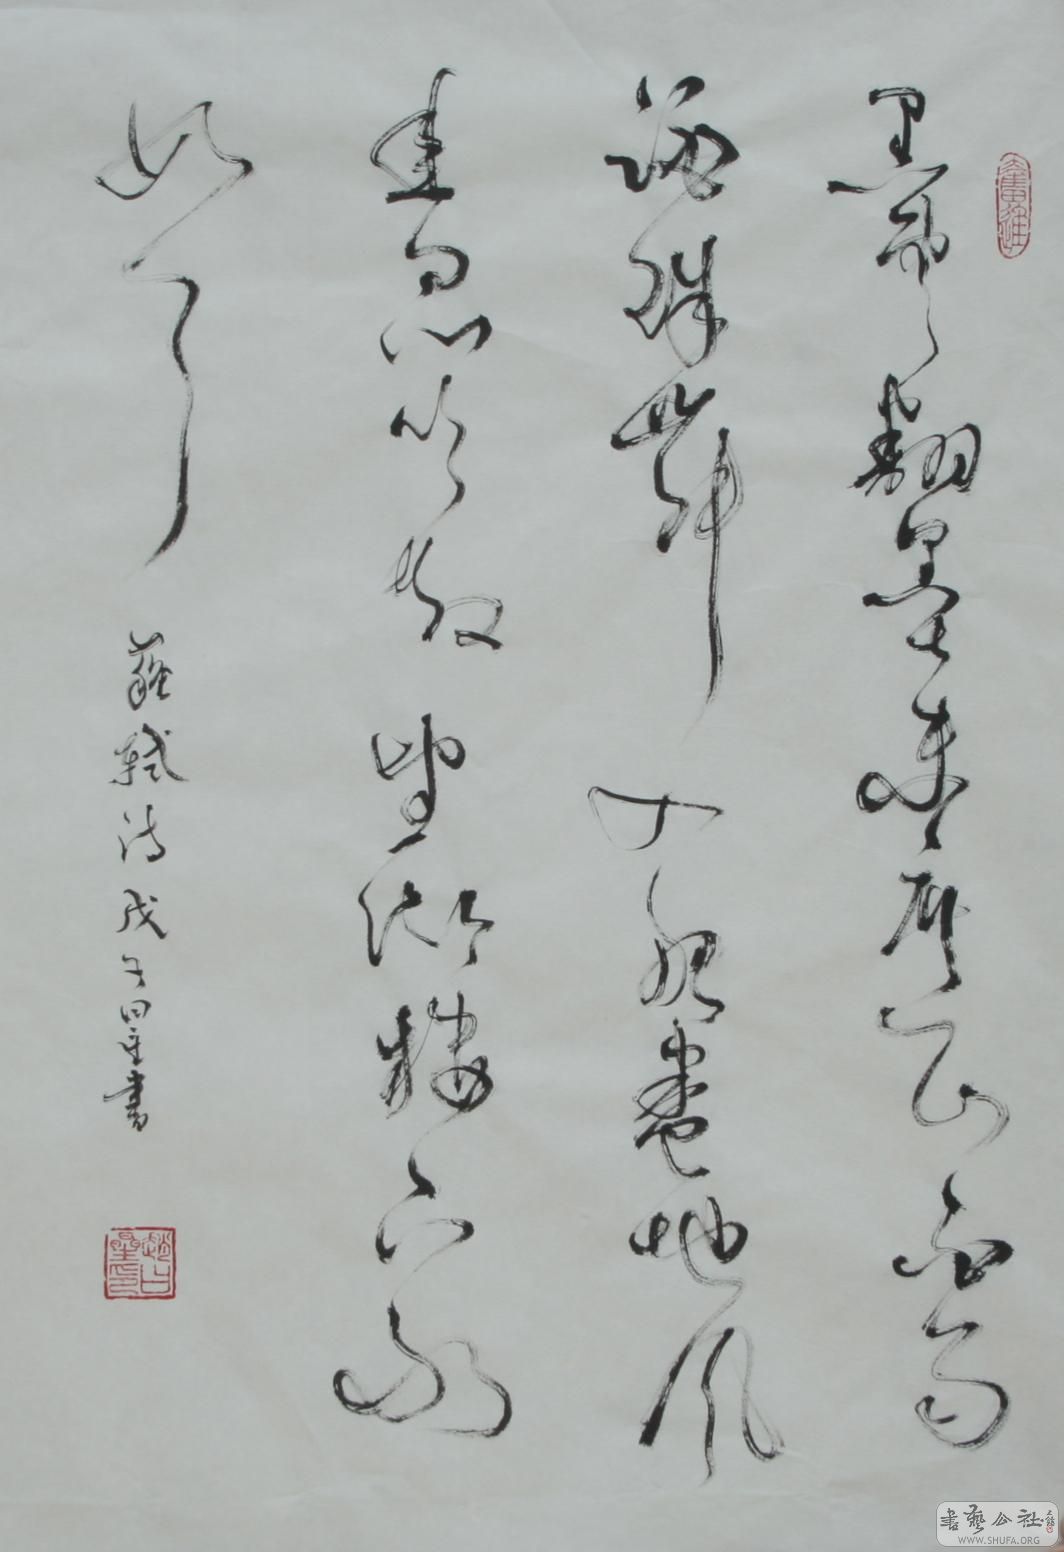 奮進
黑雲翻墨未遮山白雨
跳珠入船卷地風
來忽吹散望湖樓下水
如天
蘇軾詩戊子占星書
書藝公社
WWW.SHUFA.ORG